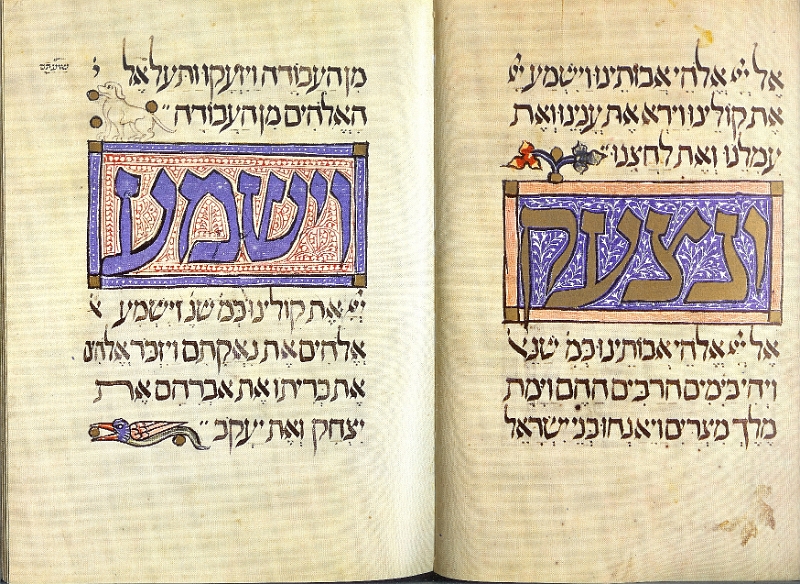 אל יי אלהי אבותינו וישמע יי
את קולינו וירא את ענינו ואת
עמלנו ואת לחצנו׃
ונצעק
אל יי אלהי אבותינו כמ֗ שנ֗
ויהי בימים הרבים ההם וימת
מלך מצרים ויאנחו בני ישראל
מן העבודה ויזעקו ותעל אל
שועתם
האלהים מן העבודה׃
וישמע
יי את קולינו כמ֗ שנ֗ וישמע
אלהים את נאקתם ויזכר אלהים
את בריתו את אברהם את
יצחק ואת יעקב׃